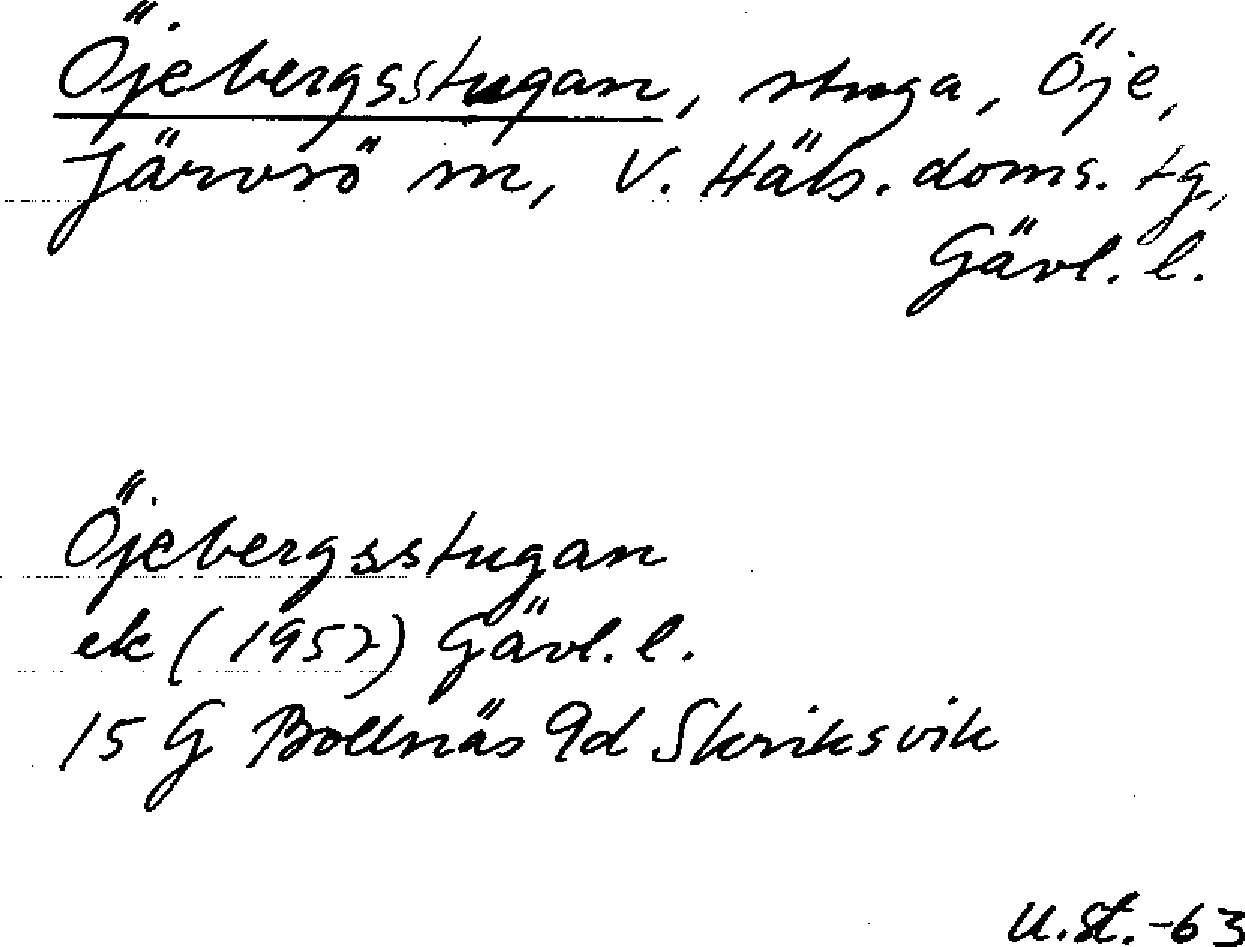 Öjebergsstugan, stuga, Öje,
Järvsö sn, V. Häls. doms. tg,
Gävl. l.
Öjebergsstugan
ek (1957) Gävl. l.
15 G Bollnäs 9d Skriksvik
U.St.-63